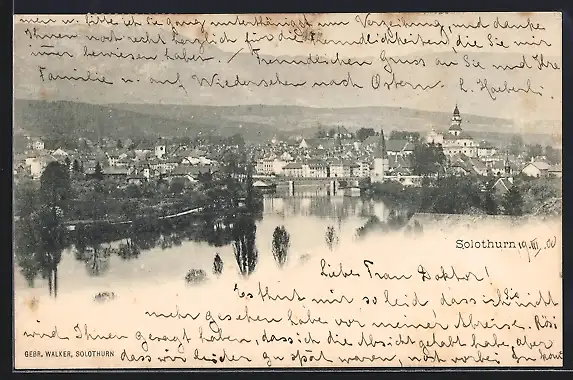 Solothurn 19. III. 00
Liebe Frau Doktor!
Es thut mir so leid dass ich Sie nicht
mehr gesehen habe vor meiner Abreise.
wird Ihnen gesagt haben, dass ich die Absicht gehabt habe, aber
dass wir leider zu spät waren, um noch vorbei zu
GEBR. WALKER, SOLOTHURN
um Verzeihung, und danke
Ihnen noch recht herzlich für die Freundlichkeiten, die Sie mir
immer bewiesen haben. Freundlichen Gruss an Sie und Ihre
Familie u. auf Wiedersehen nach Ostern.